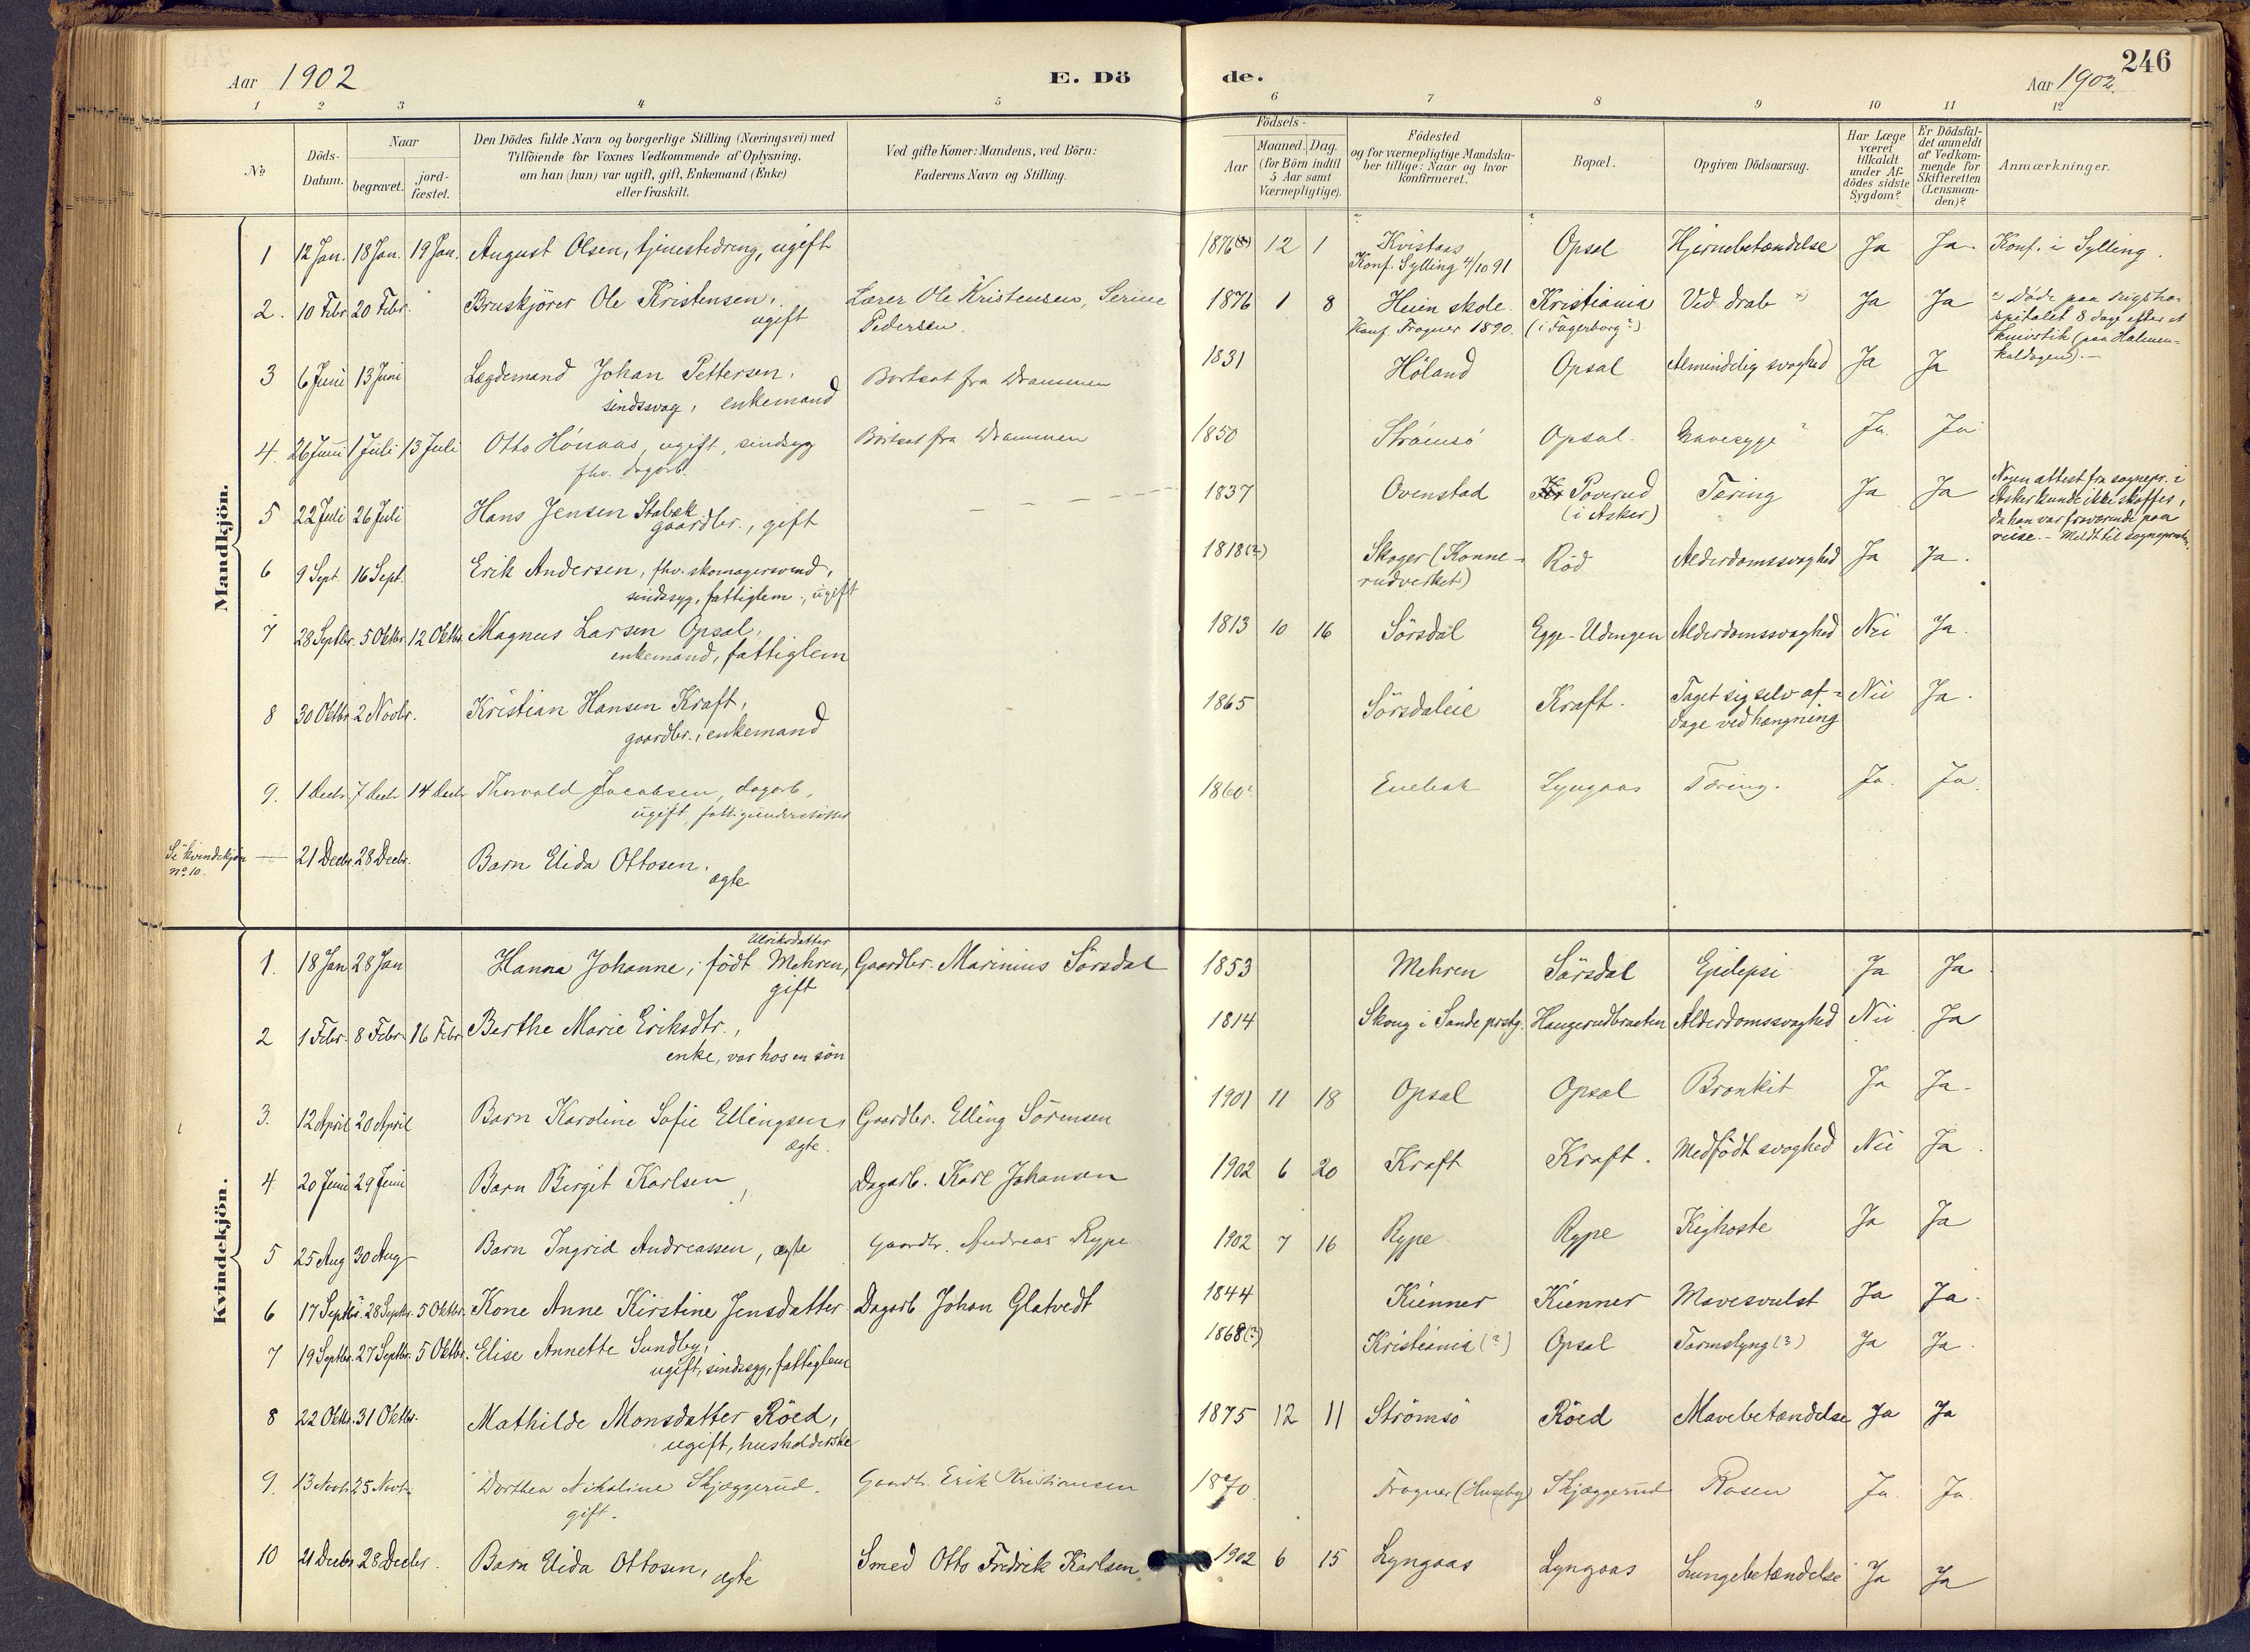 246
Aar 1902 E. Dö de. Aar 1902.
1 2 3 4 5 6 7 8 9 10 11 12
No
Döds-Datum.
Naar
begravet.
jord-fæstet.
Den Dödes fulde Navn og borgerlige Stilling (Næringsvei) med
Tilföiende for Voxnes Vedkommende af Oplysning,
om han (hun) var ugift, gift, Enkemand (Enke)
eller fraskilt.
Ved gifte Koner: Mandens, ved Börn:
Faderens Navn og Stilling.
Födsels-
Aar
Maaned. Dag.
(for Börn indtil
5 Aar samt
Værnepligtige).
Födested
og for værnepligtige Mandska-
ber tillige: Naar og hvor
konfirmeret.
Bopæl.
Opgiven Dödsaarsag.
Har Læge
været
tilkaldt
under Af-
dödes sidste
Sygdom?
Er Dödsfal-
det anmeldt
af Vedkom-
mende for
Skifteretten
(Lensman-
den)?
Anmærkninger.
Mandkjön.
1 12 Jan. 18 Jan. 19 Jan. August Olsen, tjenestedreng, ugift 1876 12 1 Kvistaas Opsal Hjernebetændelse Ja Ja. Konf. i Sylling.
Konf. Sylling 4/10 91
2. 10 Febr 20 Febr. Bruskjører Ole Kristensen, Lærer Ole Kristensen, Serine 1876 1 8 Heien skole Kristiania Ved drab Ja Ja Døde paa rigsho-
ugift Pedersen. Konf. Frogner 1890. (i Fagerborg?) spitalet 8 dage efter et
knivstik (paa Holmen-
koldagen).
3 6 Juni 13 Juni Lægdemand Johan Pettersen, Bortsat fra Drammen 1831 Höland Opsal Almindelig svaghed Ja Ja
sindssvag, enkemand
4. 26 Juni 1 Juli 13 Juli Otto Hönaas, ugift, sindsyg Bortsat fra Drammen 1850 Strömsö Opsal. Mavesyge? Ja. Ja
fhv. dagarb.
5 22 Juli 26 Juli Hans Jensen Stabæk 1837 Ovenstad Poverud Tæring Ja Ja Nogen attest fra sognepr. i
gaardbr., gift (i Asker) Asker kunde ikke skaffes,
da han var fraværende paa
reise. – Meldt til sognepræsten.
6 9 Sept. 16 Sept. Erik Andersen, fhv. skomagersvend, 1818(?) Skoger (Konne- Röd Alderdomssvaghed Ja Ja.
sindssyg, fattiglem, ugift rudverket)
7 28 Septbr. 5 Oktbr. 12 Oktbr. Magnus Larsen Opsal, 1813 10 16 Sörsdal Egge-Udengen Alderdomssvaghed Nei Ja.
enkemand, fattiglem
8 30 Oktbr. 2 Novbr. Kristian Hansen Kraft, 1865 Sörsdaleie Kraft. Taget sig selv af- Nei Ja.
gaardbr., enkemand dage ved hængning
9. 1 Decbr 7 Decbr 14 Decbr Thorvald Jacobsen, dagarb, 1860? Enebak Lyngaas Tæring. Ja. Ja.
ugift, fattigunderstöttet
Se kvindekjön — 21 Decbr. 28 Decbr. Barn Elida Ottosen,
No 10. ægte
Kvindekjön.
Ulriksdatter
1. 18 Jan 28 Jan Hanna Johanne, födt Mehren, Gaardbr. Marinius Sörsdal 1853 Mehren Sörsdal Epilepsi Ja Ja.
gift
2 1 Febr. 8 Febr. 16 Febr. Berthe Marie Eriksdtr., 1814 Skoug i Sande prstg. Haugerudbraaten Alderdomssvaghed Nei Ja
enke, var hos en sön
3. 12 April 20 April Barn Karoline Sofie Ellingsen, Gaardbr. Elling Sörensen 1901 11 18 Opsal Opsal Bronkit Ja Ja.
ægte.
4 20 Juni 29 Juni Barn Birgit Karlsen, Dagarb. Karl Johansen 1902 6 20 Kraft Kraft. Medfödt svaghed Nei Ja.
5 25 Aug 30 Aug Barn Ingrid Andreassen, ægte Gaardbr. Andreas Rype 1902 7 16 Rype Rype Kighoste Ja Ja
6 17 Septbr. 28 Septbr. 5 Oktbr. Kone Anne Kirstine Jensdatter Dagarb Johan Glatvedt 1844 Kienner Kienner Mavesvulst Ja Ja.
7 19 Septbr. 27 Septbr. 5 Oktbr. Elise Annette Sundby, 1868(?) Kristiania (?) Opsal Tarmslyng (?) Ja Ja.
ugift, sindssyg, fattiglem
8 22 Oktbr. 31 Oktbr. Mathilde Monsdatter Röed, 1875 12 11 Strömsö Röed Mavebetændelse Ja Ja
ugift, husholderske
9. 13 Novbr 25 Novbr Dorthea Nikoline Skjæggerud. Gaardbr. Erik Kristiansen 1870 Frogner (Huseby) Skjæggerud Rosen Ja. Ja.
gift.
10 21 Decbr. 28 Decbr. Barn Elida Ottosen, ægte Smed Otto Fredrik Karlsen 1902 6 15 Lyngaas Lyngaas Lungebetændelse Ja Ja